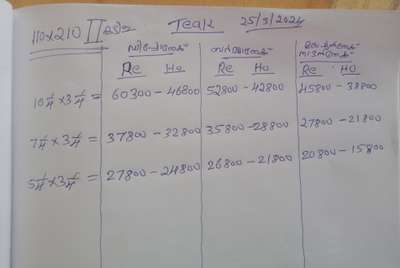 110x210 II Teak 25/3/2024
Re Ho Re Ho Re Ho
10 1/4 x 3 1/4 = 60300 - 46800 52800 - 42800 45800 - 38800
7 1/4 x 3 1/4 = 37800 - 32800 35800 - 28800 27800 - 21800
5 1/4 x 3 1/4 = 27800 - 24800 26800 - 21800 20800 - 15800